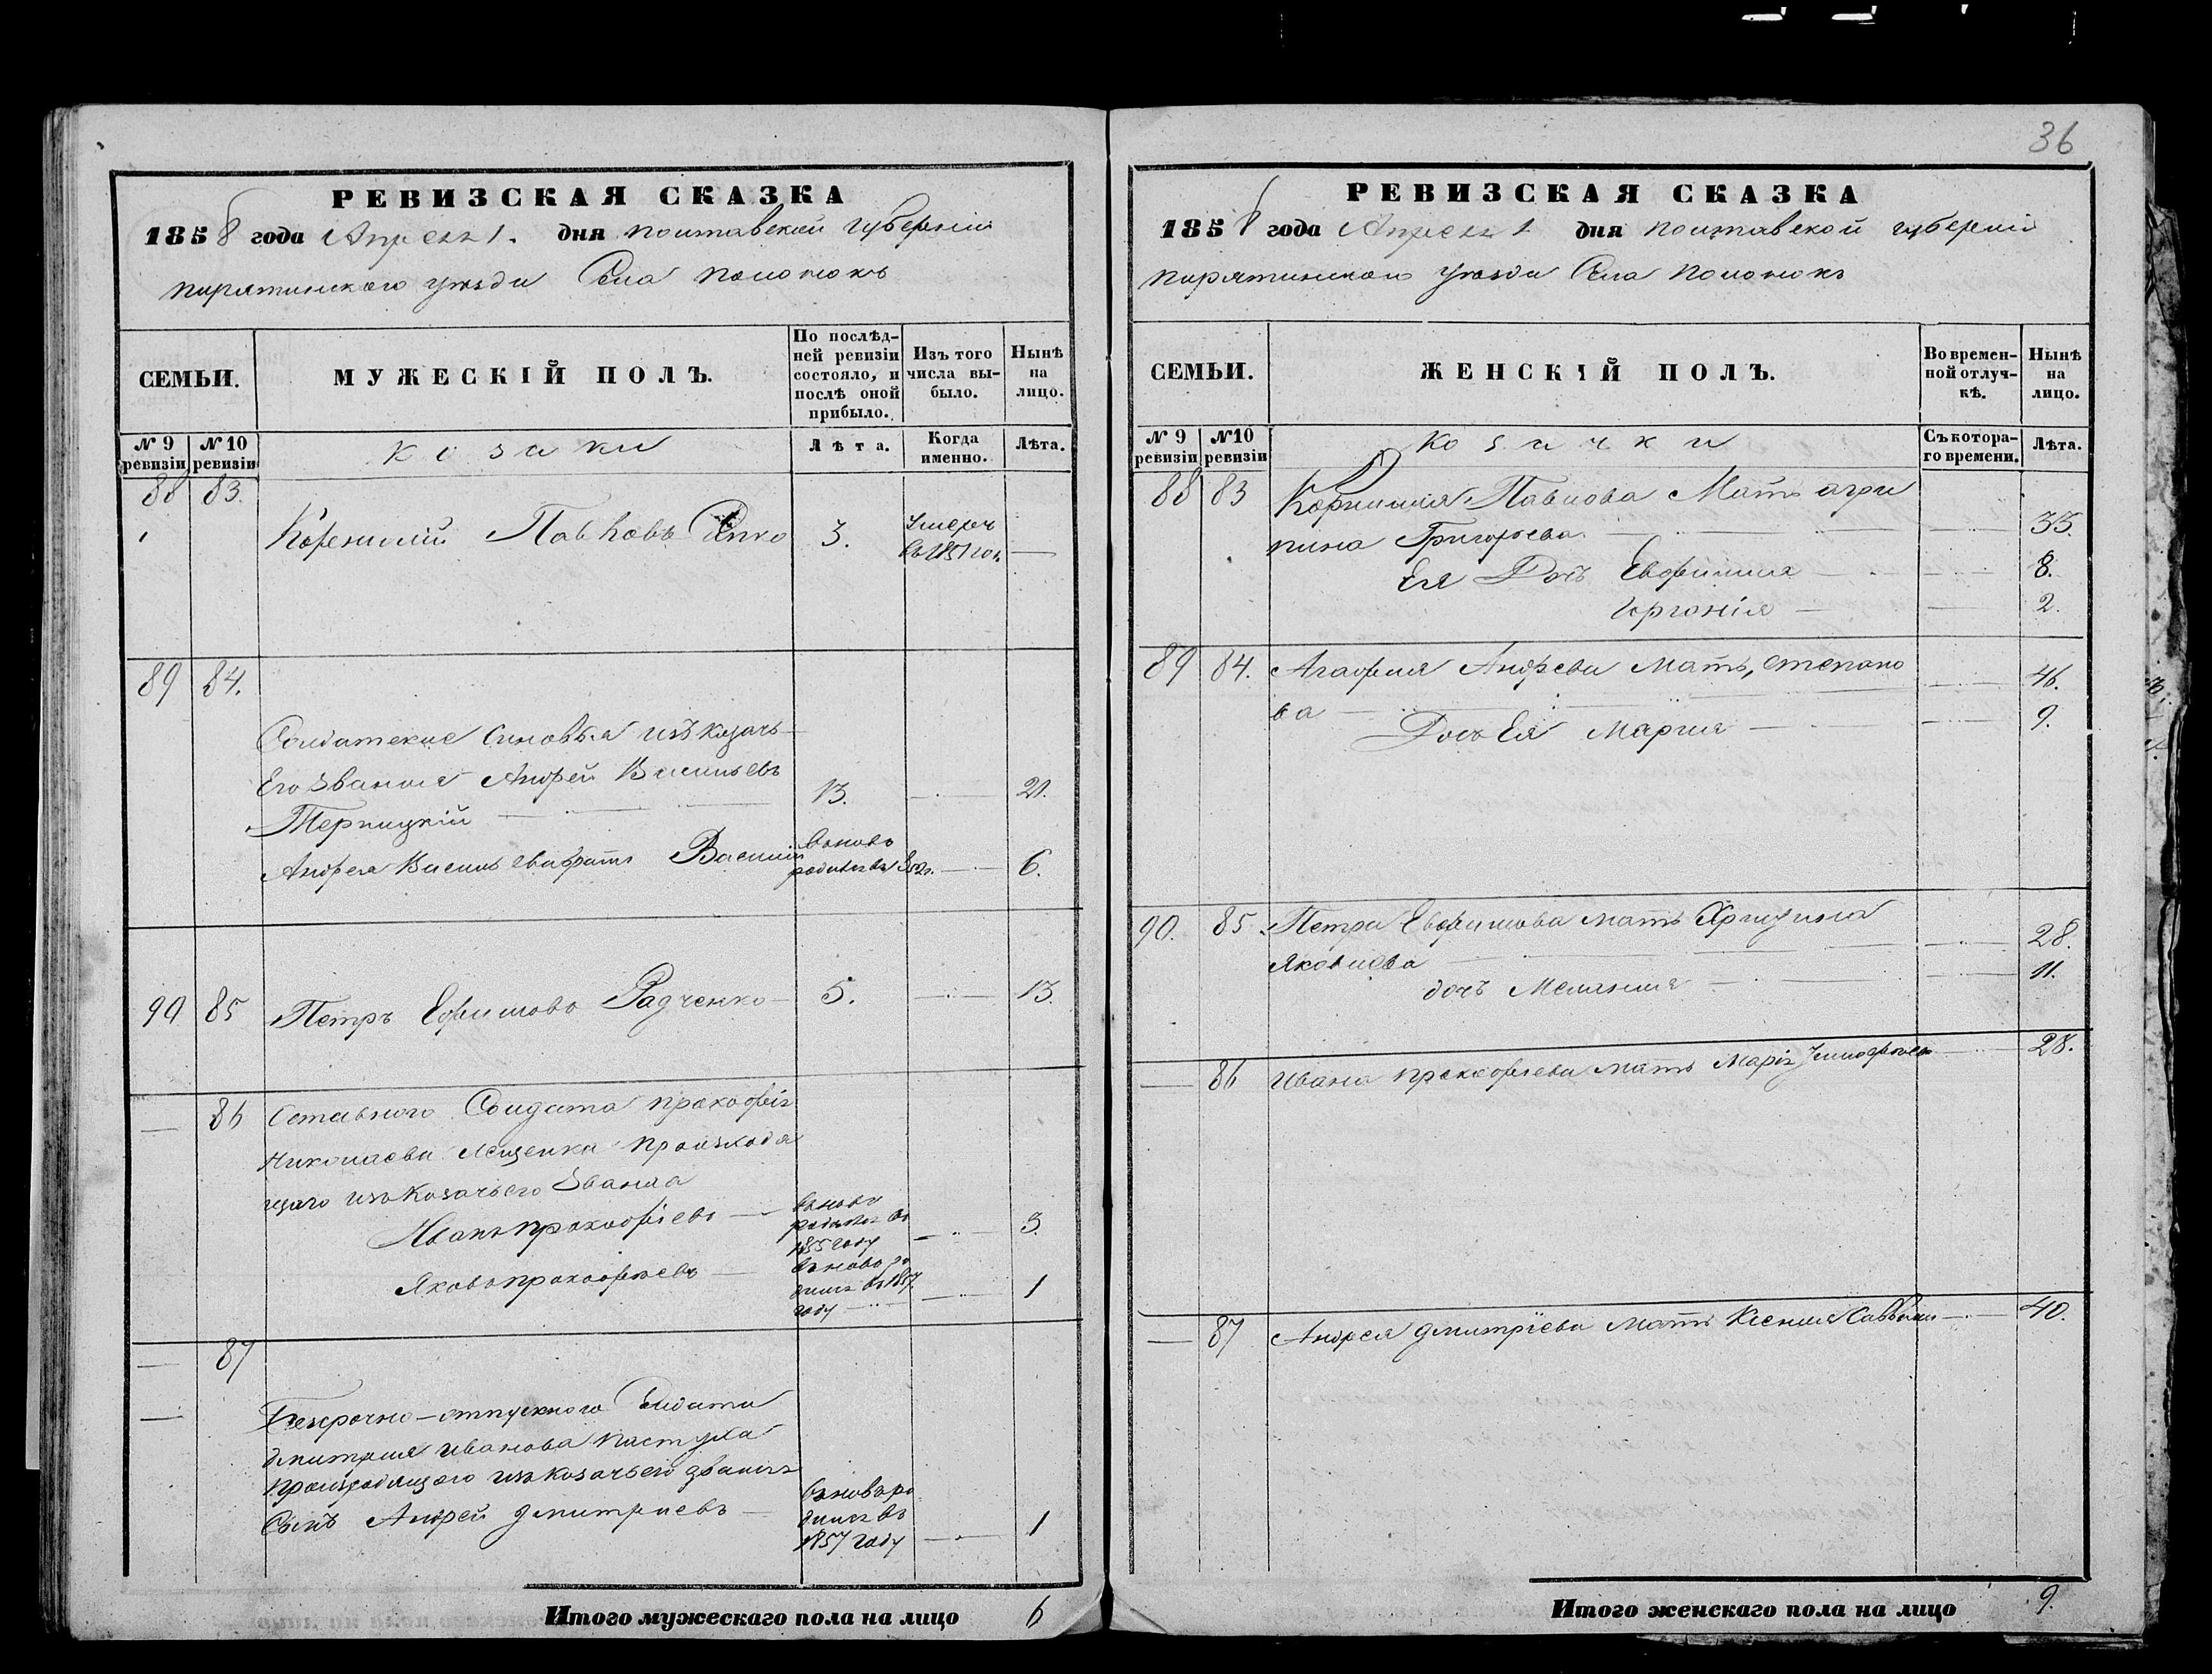 РЕВИЗСКАЯ СКАЗКА
1858 года Апреля 1. дня полтавской губерніи
пирятинского уезда Села полонокъ
СЕМЬИ.
МУЖЕСКІЙ ПОЛЪ.
По послѣд-
ней ревизіи
состояло, и
послѣ оной
прибыло.
Изъ того
числа вы-
было.
Нынѣ
на
лицо.
№ 9
ревизіи
№ 10
ревизіи
козаки
Лѣта.
Когда
именно.
Лѣта.
88 83.
Корнилій Павловъ 3. Умеръ
въ 1851 год. —
89 84.
Солдатские синовья изъ козачь-
Его Звания Андрей Васильевъ
Терницкій 13. — 21.
Андрея Васильева братъ Василий вновь
родился въ 852г. — 6.
90 85 Петръ Ефимовъ Радченко 5. — 13.
— 86 Солдата прокофія
Николаева Лещенка происходя
щаго изъ Козачьего Звания
Иванъ прокофіевъ — вновь
родился въ
1855 году — 3.
Яковъ прокофьевъ — вновь ро
дился въ 1857.
году — 1
— 87
— Безсрочно-отпускного Солдата
дмитрия иванова пастуха
происходящого изъ козачьего звания
Сынъ Андрей дмитриевъ — вновь ро
дился въ
1857 году — 1
Итого мужескаго пола на лицо 6
36
РЕВИЗСКАЯ СКАЗКА
1858 года Апреля 1 дня полтавской губерніи
пирятинского уезда Села полонокъ
СЕМЬИ.
ЖЕНСКІЙ ПОЛЪ.
Во времен-
ной отлуч-
кѣ.
Нынѣ
на
лицо.
№ 9
ревизіи
№10
ревизіи
козачки
Съ котора-
го времени.
Лѣта.
88 83 Корнилия Павлова Мать агри
пина Григорьева — 33.
Ея Дочь Евфимия — 8.
Горгонія — 2.
89 84. Агафия Андрева Мать, степано
ва — 46.
Дочь Ея Мария — 9.
90. 85. Петра Евфимова мать
Яковлева — 28.
дочь Мелания — 11.
— 86 Ивана прокофьева мать Марія — 28.
— 87 Андрея дмитріева мать Ксения — 40.
Итого женскаго пола на лицо 9.